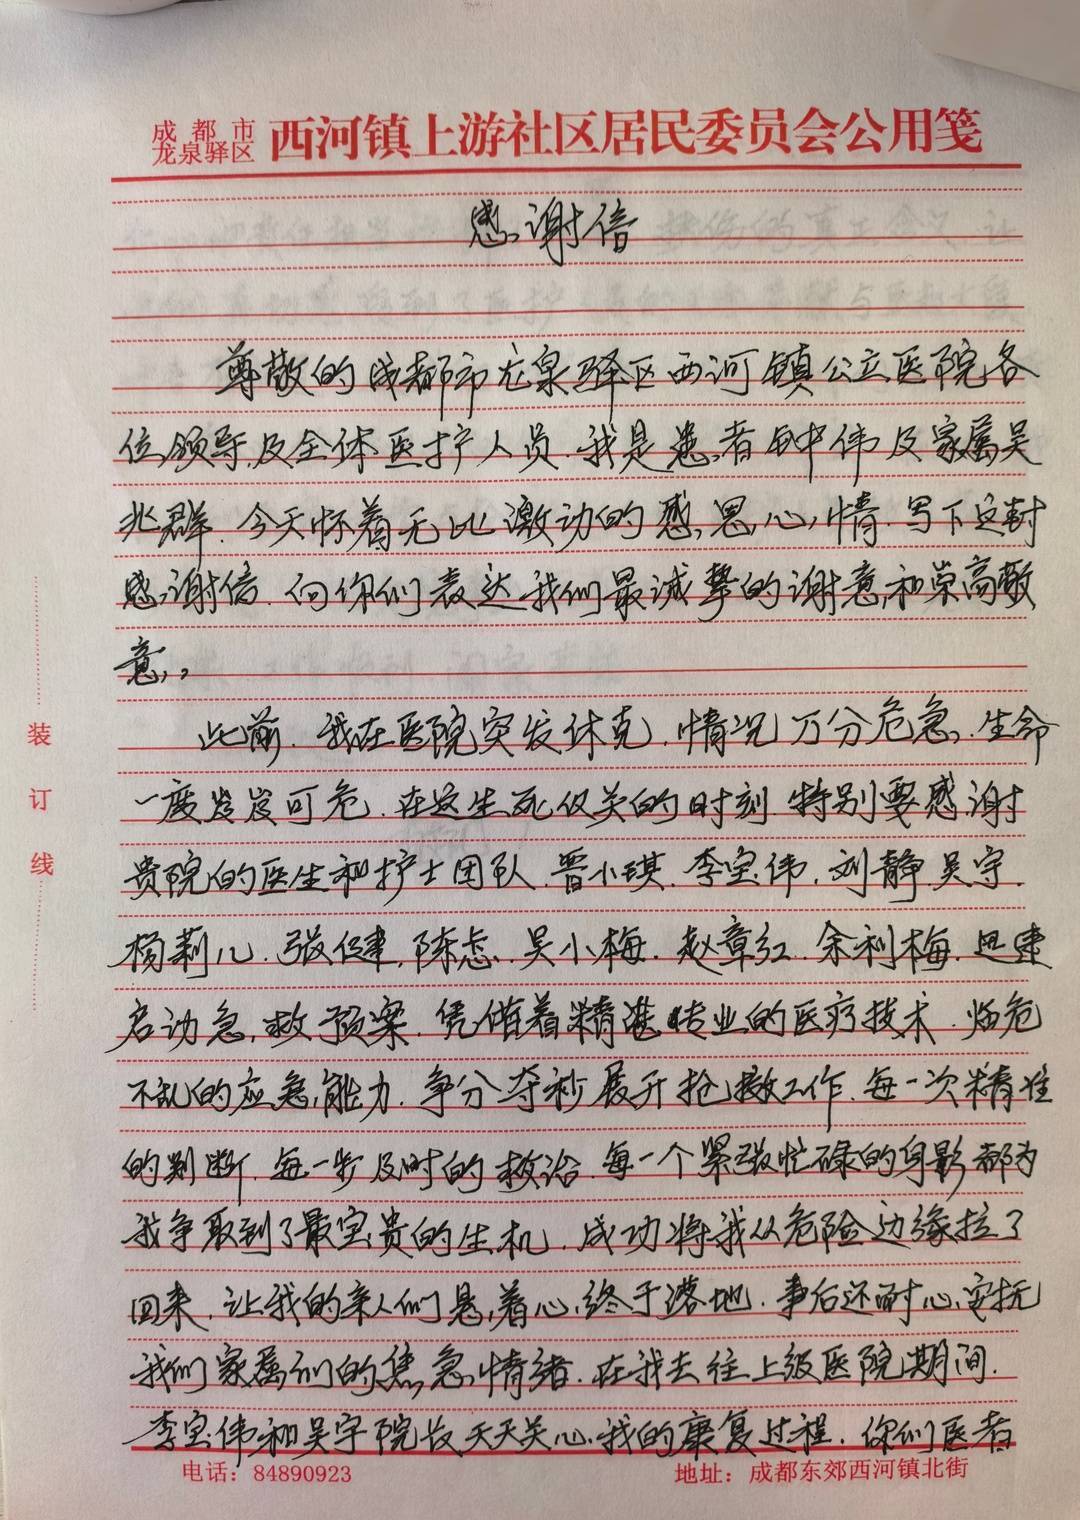 成都市
龙泉驿区
西河镇上游社区居民委员会公用笺
感谢信
尊敬的成都市龙泉驿区西河镇公立医院各
位领导及全体医护人员.我是患者钟伟及家属吴
兆群.今天怀着无比激动的感恩心情.写下这封
感谢信.向你们表达我们最诚挚的谢意和崇高敬
意。
此前.我在医院突发休克.情况万分危急.生命
一度岌岌可危.在这生死攸关的时刻.特别要感谢
贵院的医生和护士团队.曾小琪.李宝伟.刘静.吴宇.
杨莉儿.张健.陈忐.吴小梅.赵章红.余利梅.迅速
启动急救预案.凭借着精湛专业的医疗技术.临危
不乱的应急能力.争分夺秒展开抢救工作.每一次精准
的判断.每一步及时的救治.每一个紧张忙碌的身影都为
我争取到了最宝贵的生机.成功将我从危险边缘拉了
回来.让我的亲人们悬着心终于落地.事后还耐心安抚
我们家属们的焦急情绪.在我去往上级医院期间.
李宝伟和吴宇院长天天关心我的康复过程.你们医者
装
订
线
电话：84890923
地址：成都东郊西河镇北街